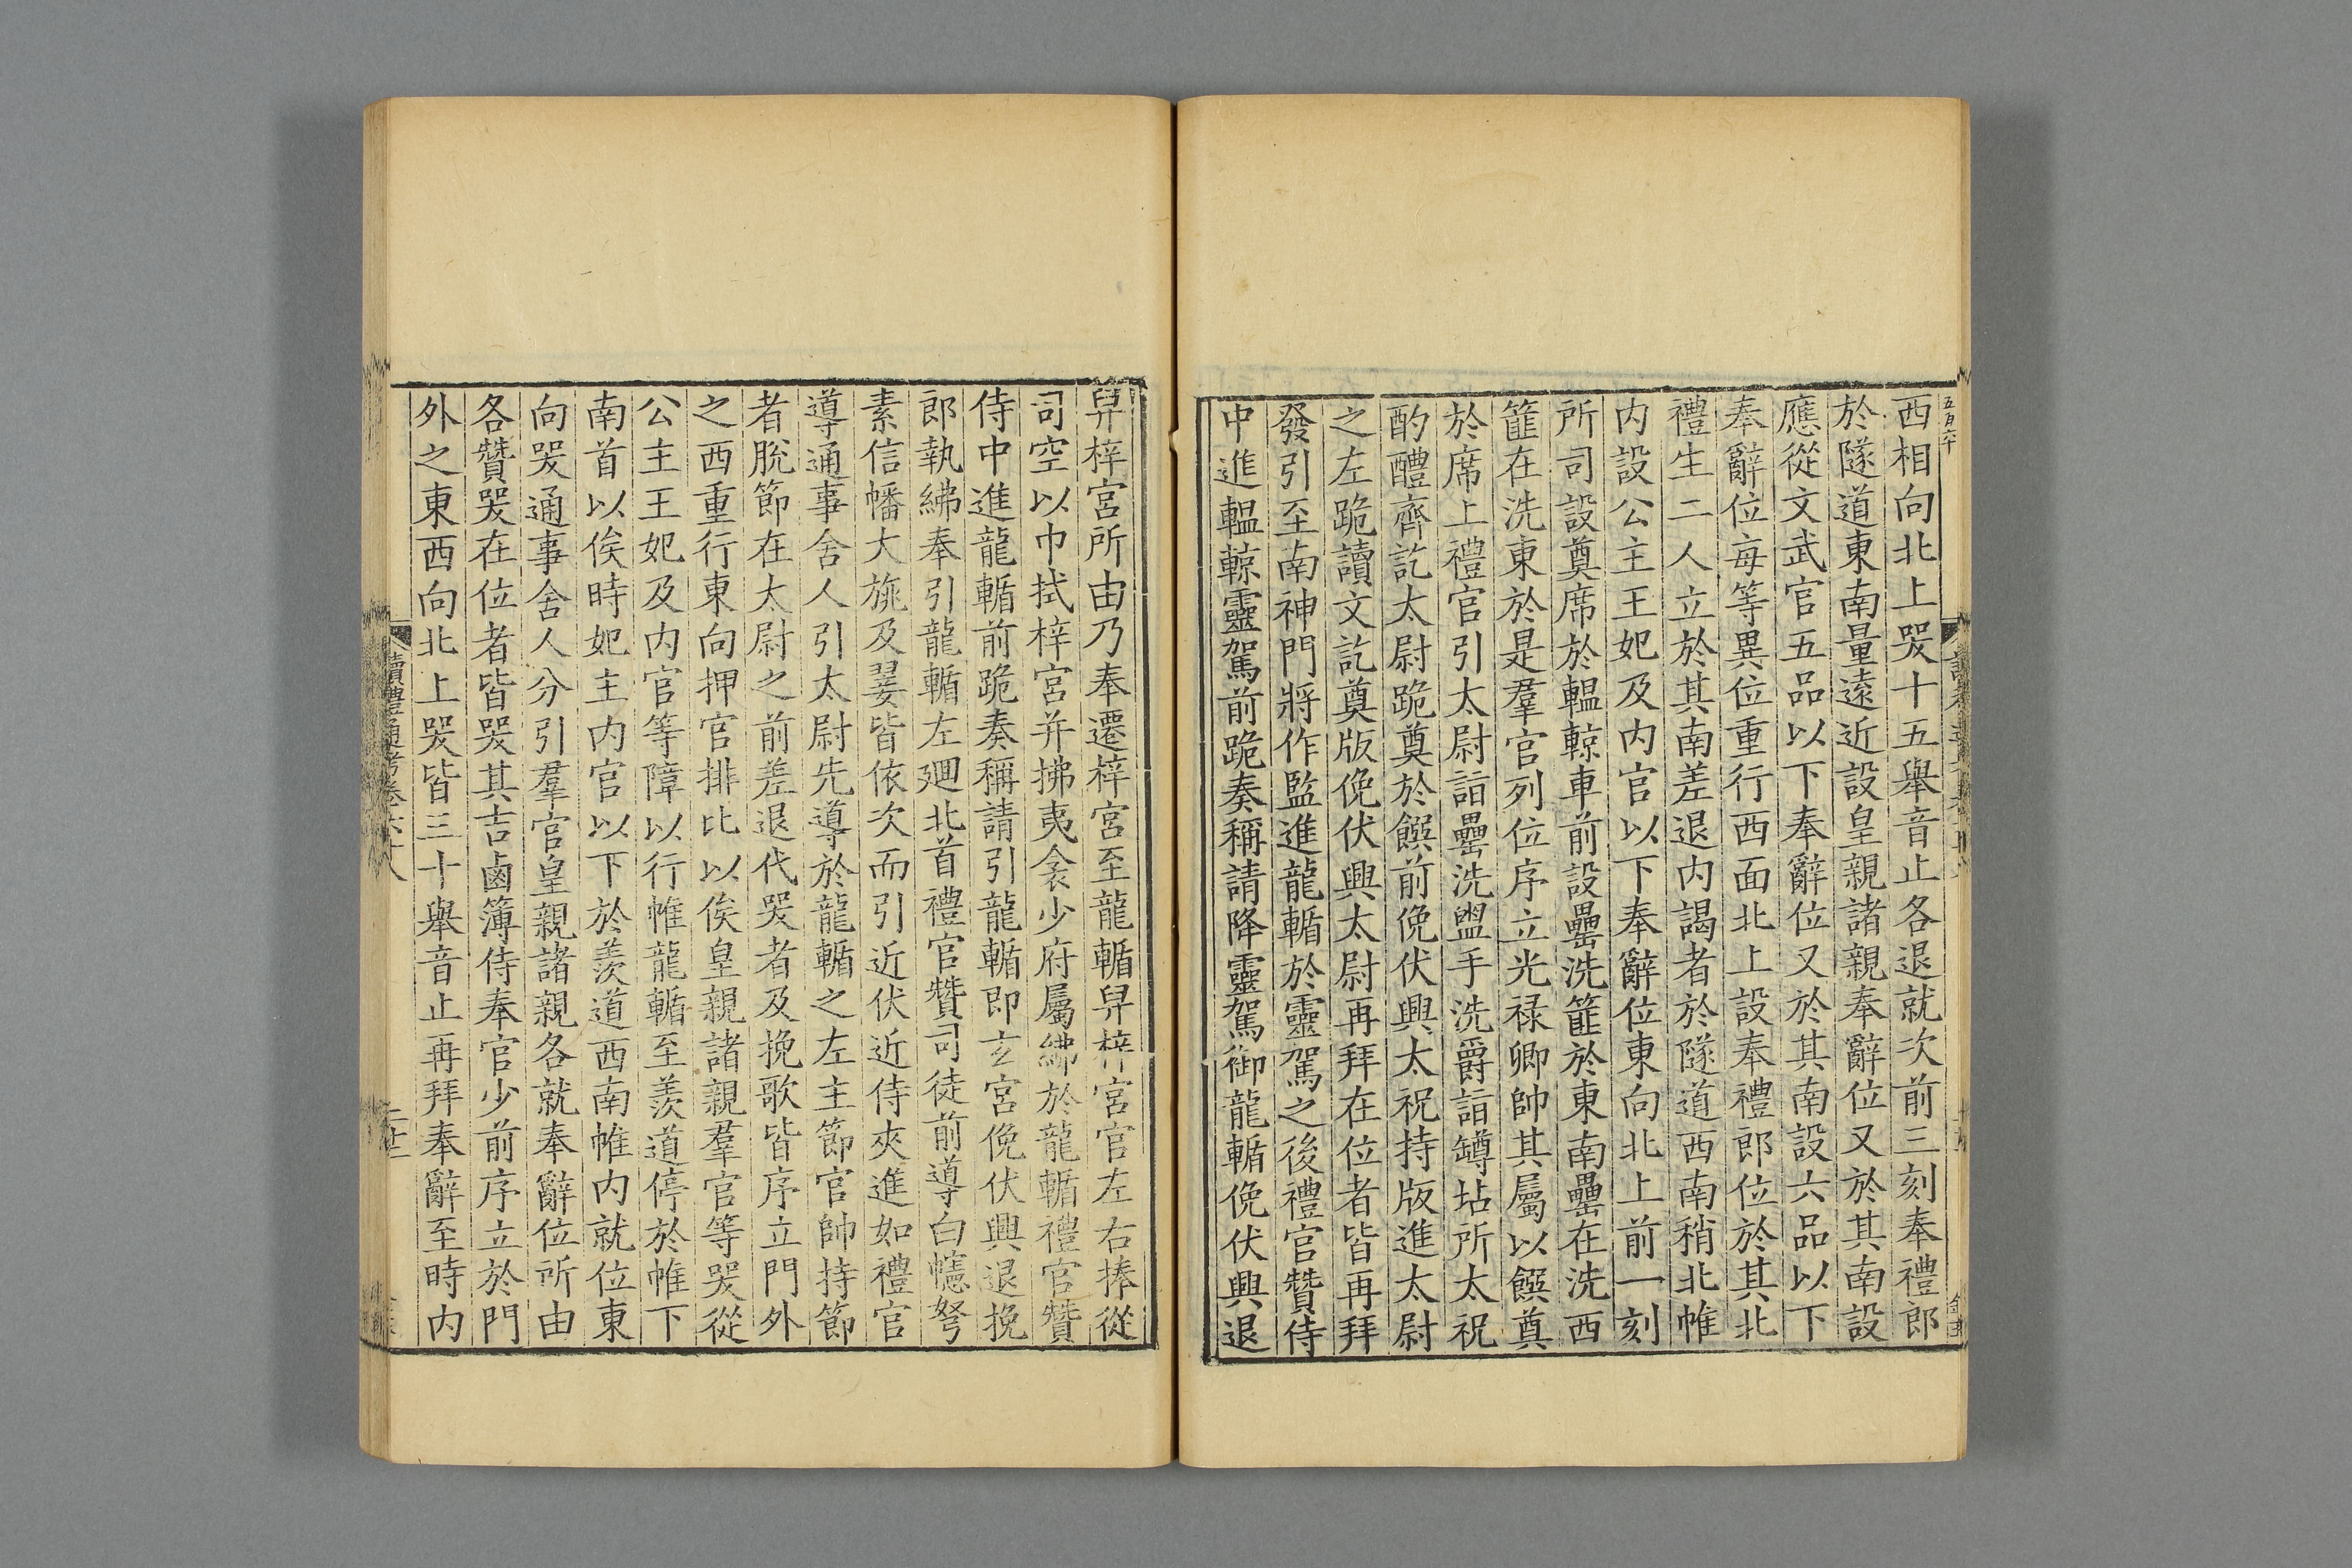 西相向北上哭十五舉音止各退就次前三刻奉禮郎
於隧道東南量遠近設皇親諸親奉辭位又於其南設
應從文武官五品以下奉辭位又於其南設六品以下
奉辭位每等異位重行西面北上設奉禮郎位於其北
禮生二人立於其南差退内謁者於隧道西南稍北帷
内設公主王妃及内官以下奉辭位東向北上前一刻
所司設奠席於轀輬車前設罍洗篚於東南罍在洗西
篚在洗東於是羣官列位序立光禄卿帥其屬以饌奠
於席上禮官引太尉詣罍洗盥手洗爵詣罇坫所太祝
酌醴齊訖太尉跪奠於饌前俛伏興太祝持版進太尉
之左跪讀文訖奠版俛伏興太尉再拜在位者皆再拜
發引至南神門將作監進龍輴於靈駕之後禮官贊侍
中進轀輬靈駕前跪奏稱請降靈駕御龍輴俛伏興退
舁梓宮所由乃奉遷梓宮至龍輴舁梓宮官左右捧從
司空以巾拭梓宮并拂夷衾少府屬紼於龍輴禮官贊
侍中進龍輴前跪奏稱請引龍輴即玄宮俛伏興退挽
郎執紼奉引龍輴左廻北首禮官贊司徒前導白幰弩
素信幡大旐及翣皆依次而引近伏近侍夾進如禮官
導通事舍人引太尉先導於龍輴之左主節官帥持節
者脫節在太尉之前差退代哭者及挽歌皆序立門外
之西重行東向押官排比以俟皇親諸親羣官等哭從
公主王妃及内官等障以行帷龍輴至羨道停於帷下
南首以俟時妃主内官以下於羨道西南帷内就位東
向哭通事舍人分引羣官皇親諸親各就奉辭位所由
各贊哭在位者皆哭其吉鹵簿侍奉官少前序立於門
外之東西向北上哭皆三十舉音止再拜奉辭至時内
讀禮通考卷六十八